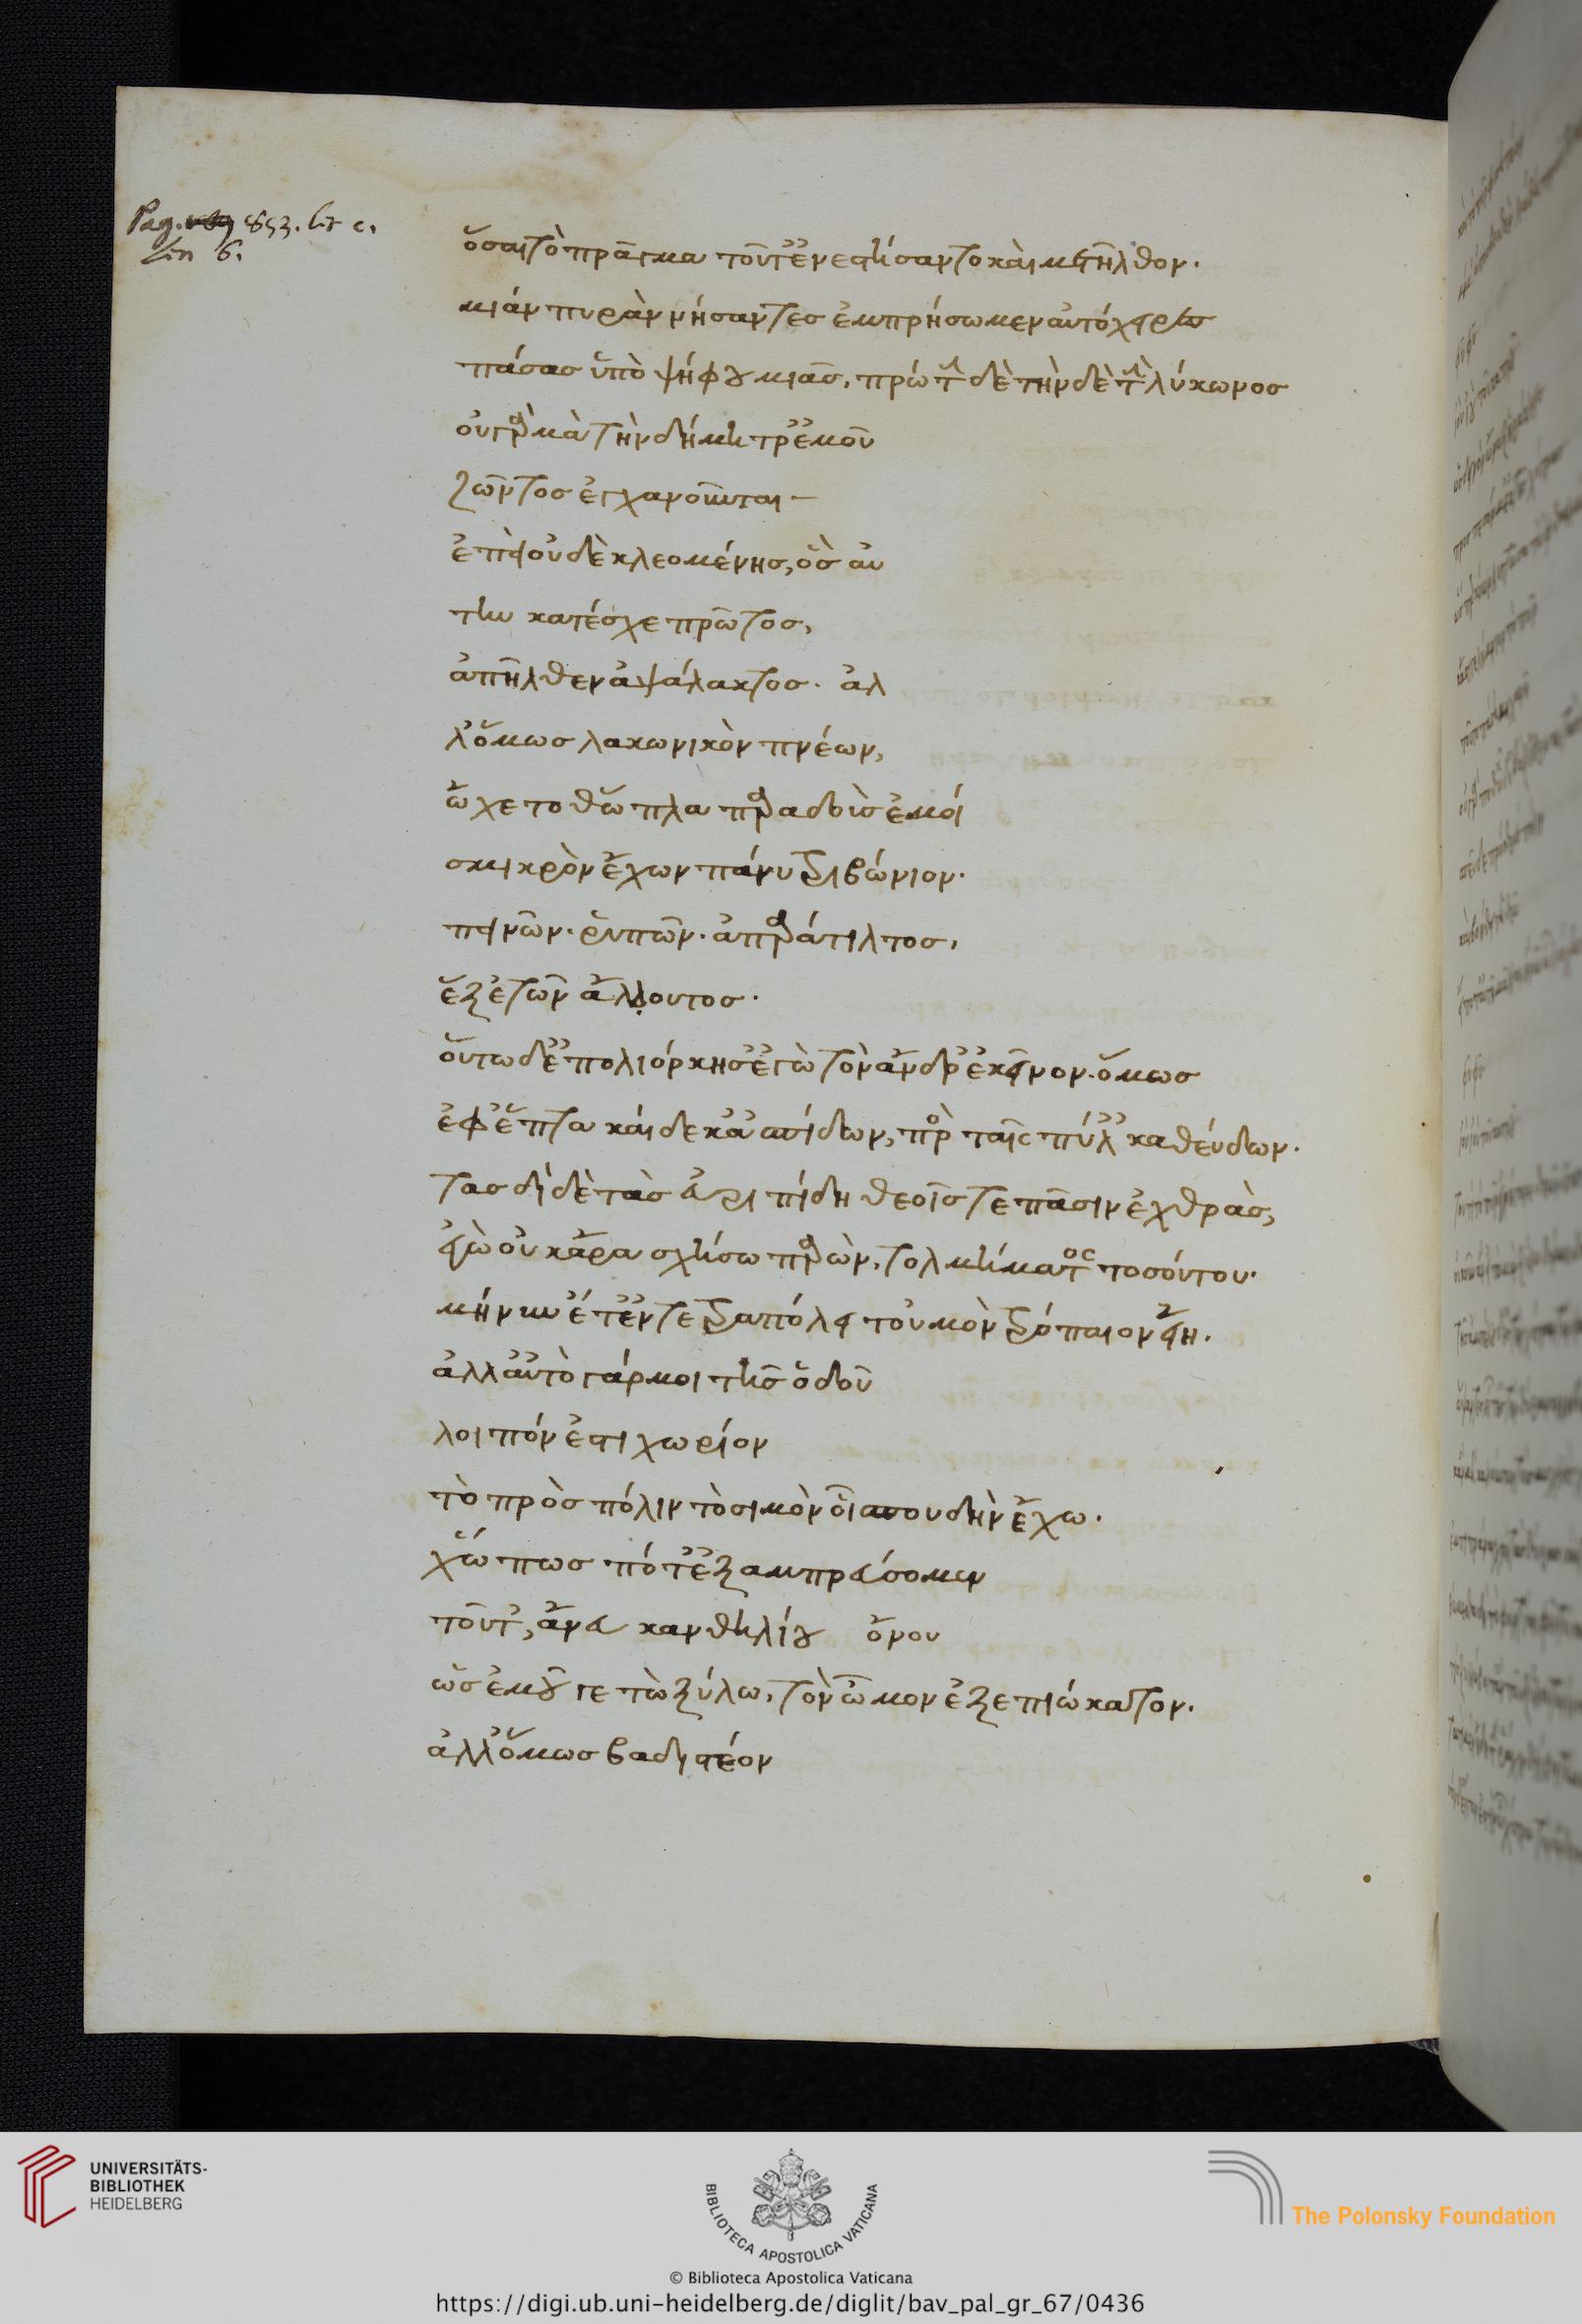 Pag. 853. lit c.
Lin 6.
ὅσαι τὸ πρᾶγμα τοῦτ' ἐνεστήσαντο καὶ μετῆλθον.
μιάν πυρὰν νήσαντες ἐμπρήσωμεν αὐτόχειρες
πάσας ὑπὸ ψήφου μιᾶς, πρώτην δὲ τὴν δὲ τὴν λύκωνος
οὐ γὰρ μὰ τὴν δήμητρ' ἐμοῦ
ζῶντος ἐγχανοῦνται
ἐπεὶ οὐδὲ κλεομένης, ὃς αὐ
τὴν κατέσχε πρῶτος,
ἀπῆλθεν ἀψάλακτος. ἀλ
λ' ὅμως λακωνικὸν πνέων,
ᾤχετο θὤπλα παραδοὺς ἐμοί
σμικρὸν ἔχων πάνυ τριβώνιον.
πεινῶν. ῥυπῶν. ἀπαράτιλτος,
ἓξ ἐτῶν ἄλλουτος.
οὕτω δ' ἐπολιόρκησ' ἐγὼ τὸν ἄνδρ' ἐκεῖνον. ὅμως
ἐφ' ἑπτακαίδεκ' ἀσπίδων, πρὸ ταῖς πύλ' καθεύδων.
τασδὶ δὲ τὰς εὐριπίδη θεοῖς τε πᾶσιν ἐχθρὰς,
ἐγὼ οὐκ ἄρα σχήσω παρὼν, τολμήματος τοσούτου.
μήν νυν ἔτ' ἐν τετραπόλει τοὐμὸν τρόπαιον εἴη.
ἀλλ' αὐτὸ γάρ μοι τῆς ὁδοῦ
λοιπόν ἐστι χωρίον
τὸ πρὸς πόλιν τὸ σιμὸν οἷ σπουδὴν ἔχω.
χὤπως πότ' ἐξαμπρεύσομεν
τοῦτ', ἄνευ κανθηλίου ὄνου
ὡς ἐμοῦ γε τὼ ξύλω, τὸν ὦμον ἐξεπιώκατον.
ἀλλ' ὅμως βαδιστέον
UNIVERSITÄTS-
BIBLIOTHEK
HEIDELBERG
BIBLIOTECA APOSTOLICA VATICANA
The Polonsky Foundation
© Biblioteca Apostolica Vaticana
https://digi.ub.uni-heidelberg.de/diglit/bav_pal_gr_67/0436